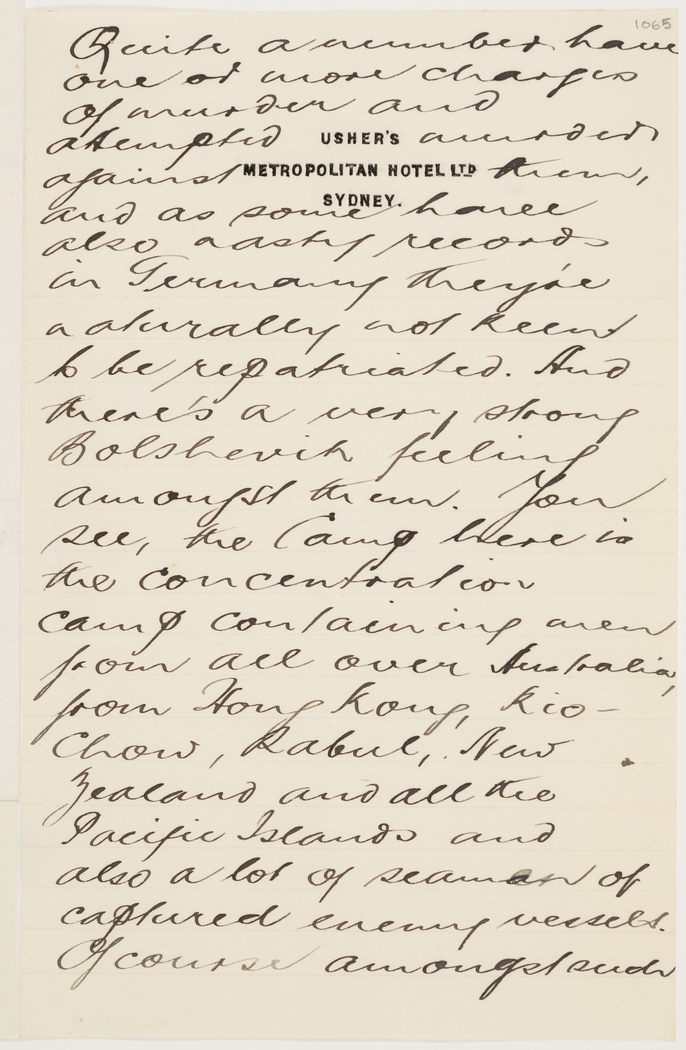 1065
Quite a number have
one or more charges
of murder and
attempted USHER'S murder
against METROPOLITAN HOTEL LTD them,
SYDNEY.
and as some have
also nasty records
in Germany they're
naturally not keen
to be repatriated. And
there's a very strong
Bolshevik feeling
amongst them. You
see, the Camp here is
the concentration
camp containing men
from all over Australia,
from Hong Kong, Kio-
Chow, Rabul, New
Zealand and all the
Pacific Islands and
also a lot of seamen of
captured enemy vessels.
Of course amongst such